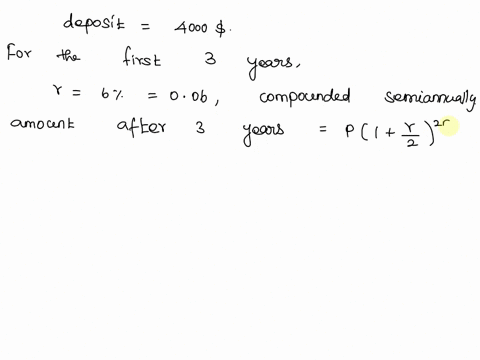 deposit = 4000 $.
For the first 3 years,
r = 6% = 0.06, compounded semiannually
amount after 3 years = P(1 + r/2)^2r